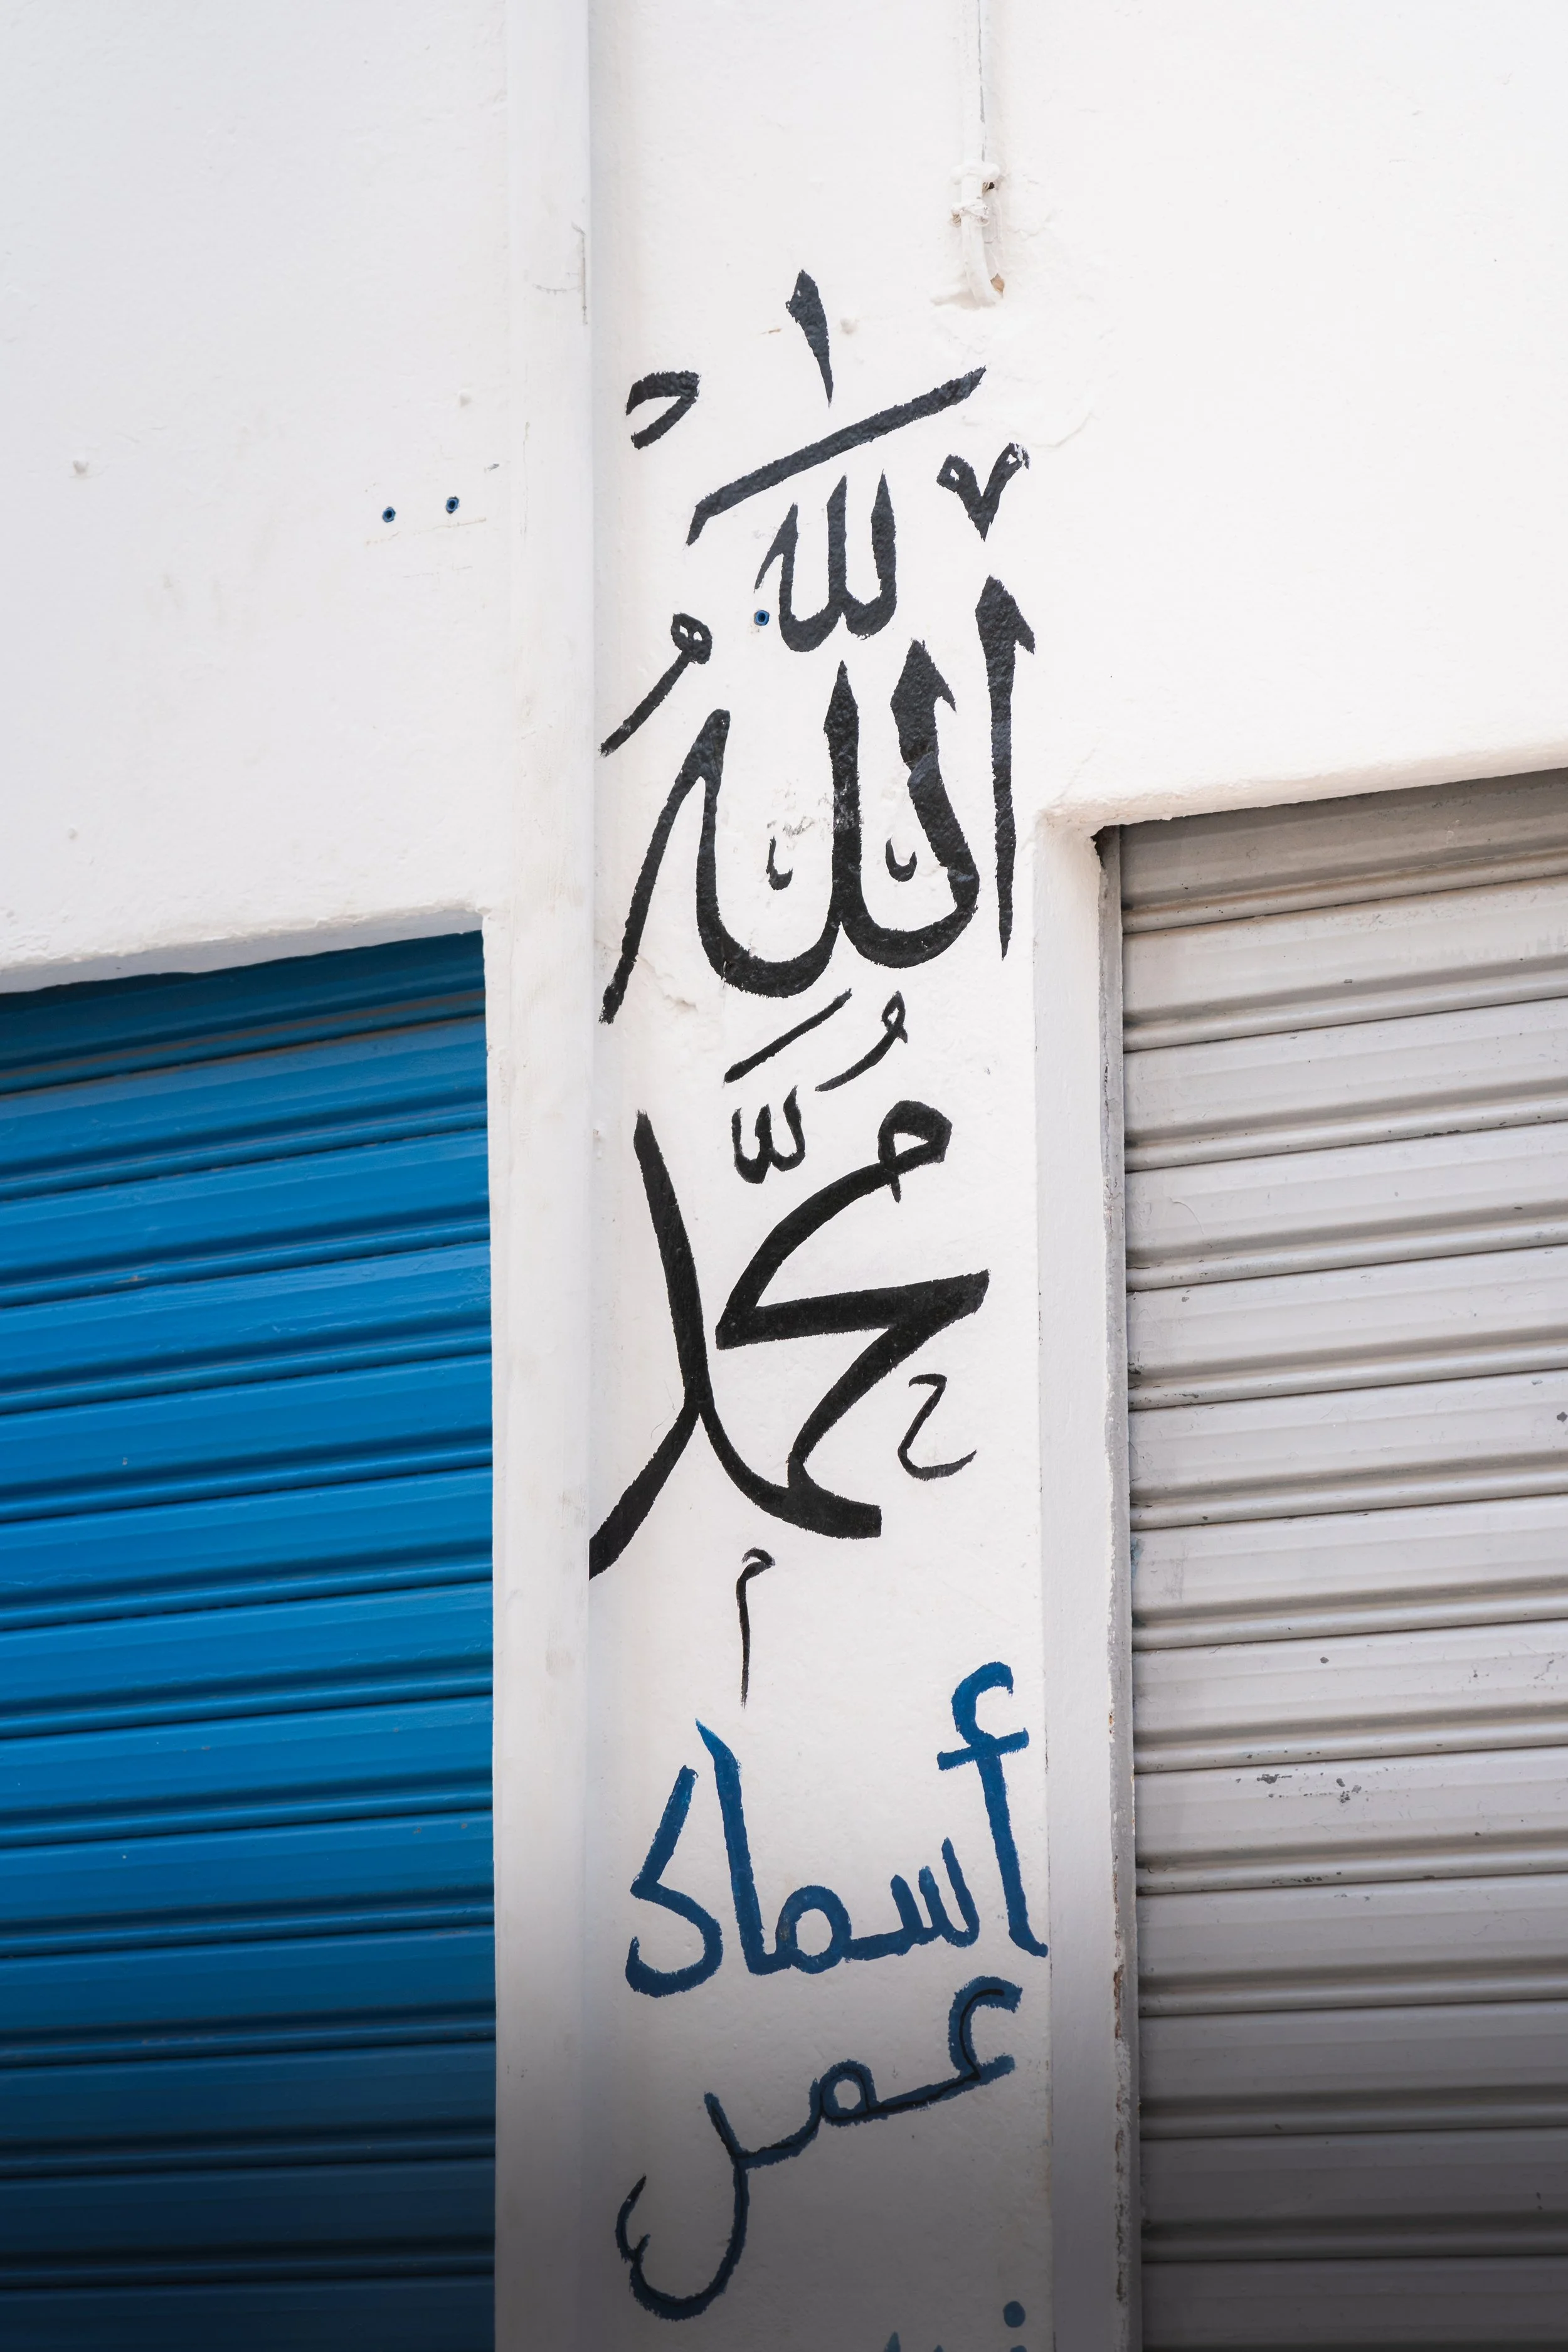 اللَّهُ
مُحَمَّد
أسماك
عمر